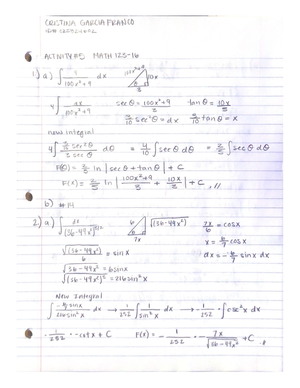 CRISTINA GARCIA FRANCO
ACTIVITY #5 MATH 125-16
1.) a) ∫ 1/(100x²+9) dx
4∫ dx/(100x²+9) secθ = (100x²+9)/3 tanθ = 10x/3
3/10 sec²θ = dx 3/10 tanθ = x
new integral
dθ = 4/10 ∫ secθ dθ = 2/5 ∫ secθ dθ
F(θ) = 2/5 ln |secθ + tanθ| + C
F(x) = 2/5 ln |(100x²+9)/3 + 10x/3| + C
b) #14
2.) a) ∫ dx/√(36-49x²)³ 6 √(36-49x²) 7x/6 = cosx
7x x = 6/7 cosx
√(36-49x²)/6 = sinx dx = -6/7 sinx dx
√(36-49x²) = 6sinx
√(36-49x²)³ = 216sin³x
New Integral
∫ (-6/7 sinx)/(216sin³x) dx → -1/252 ∫ 1/sin²x dx → -1/252 · ∫ csc²x dx
-1/252 · -cotx + C F(x) = -1/252 · -7x/√(36-49x²) + C